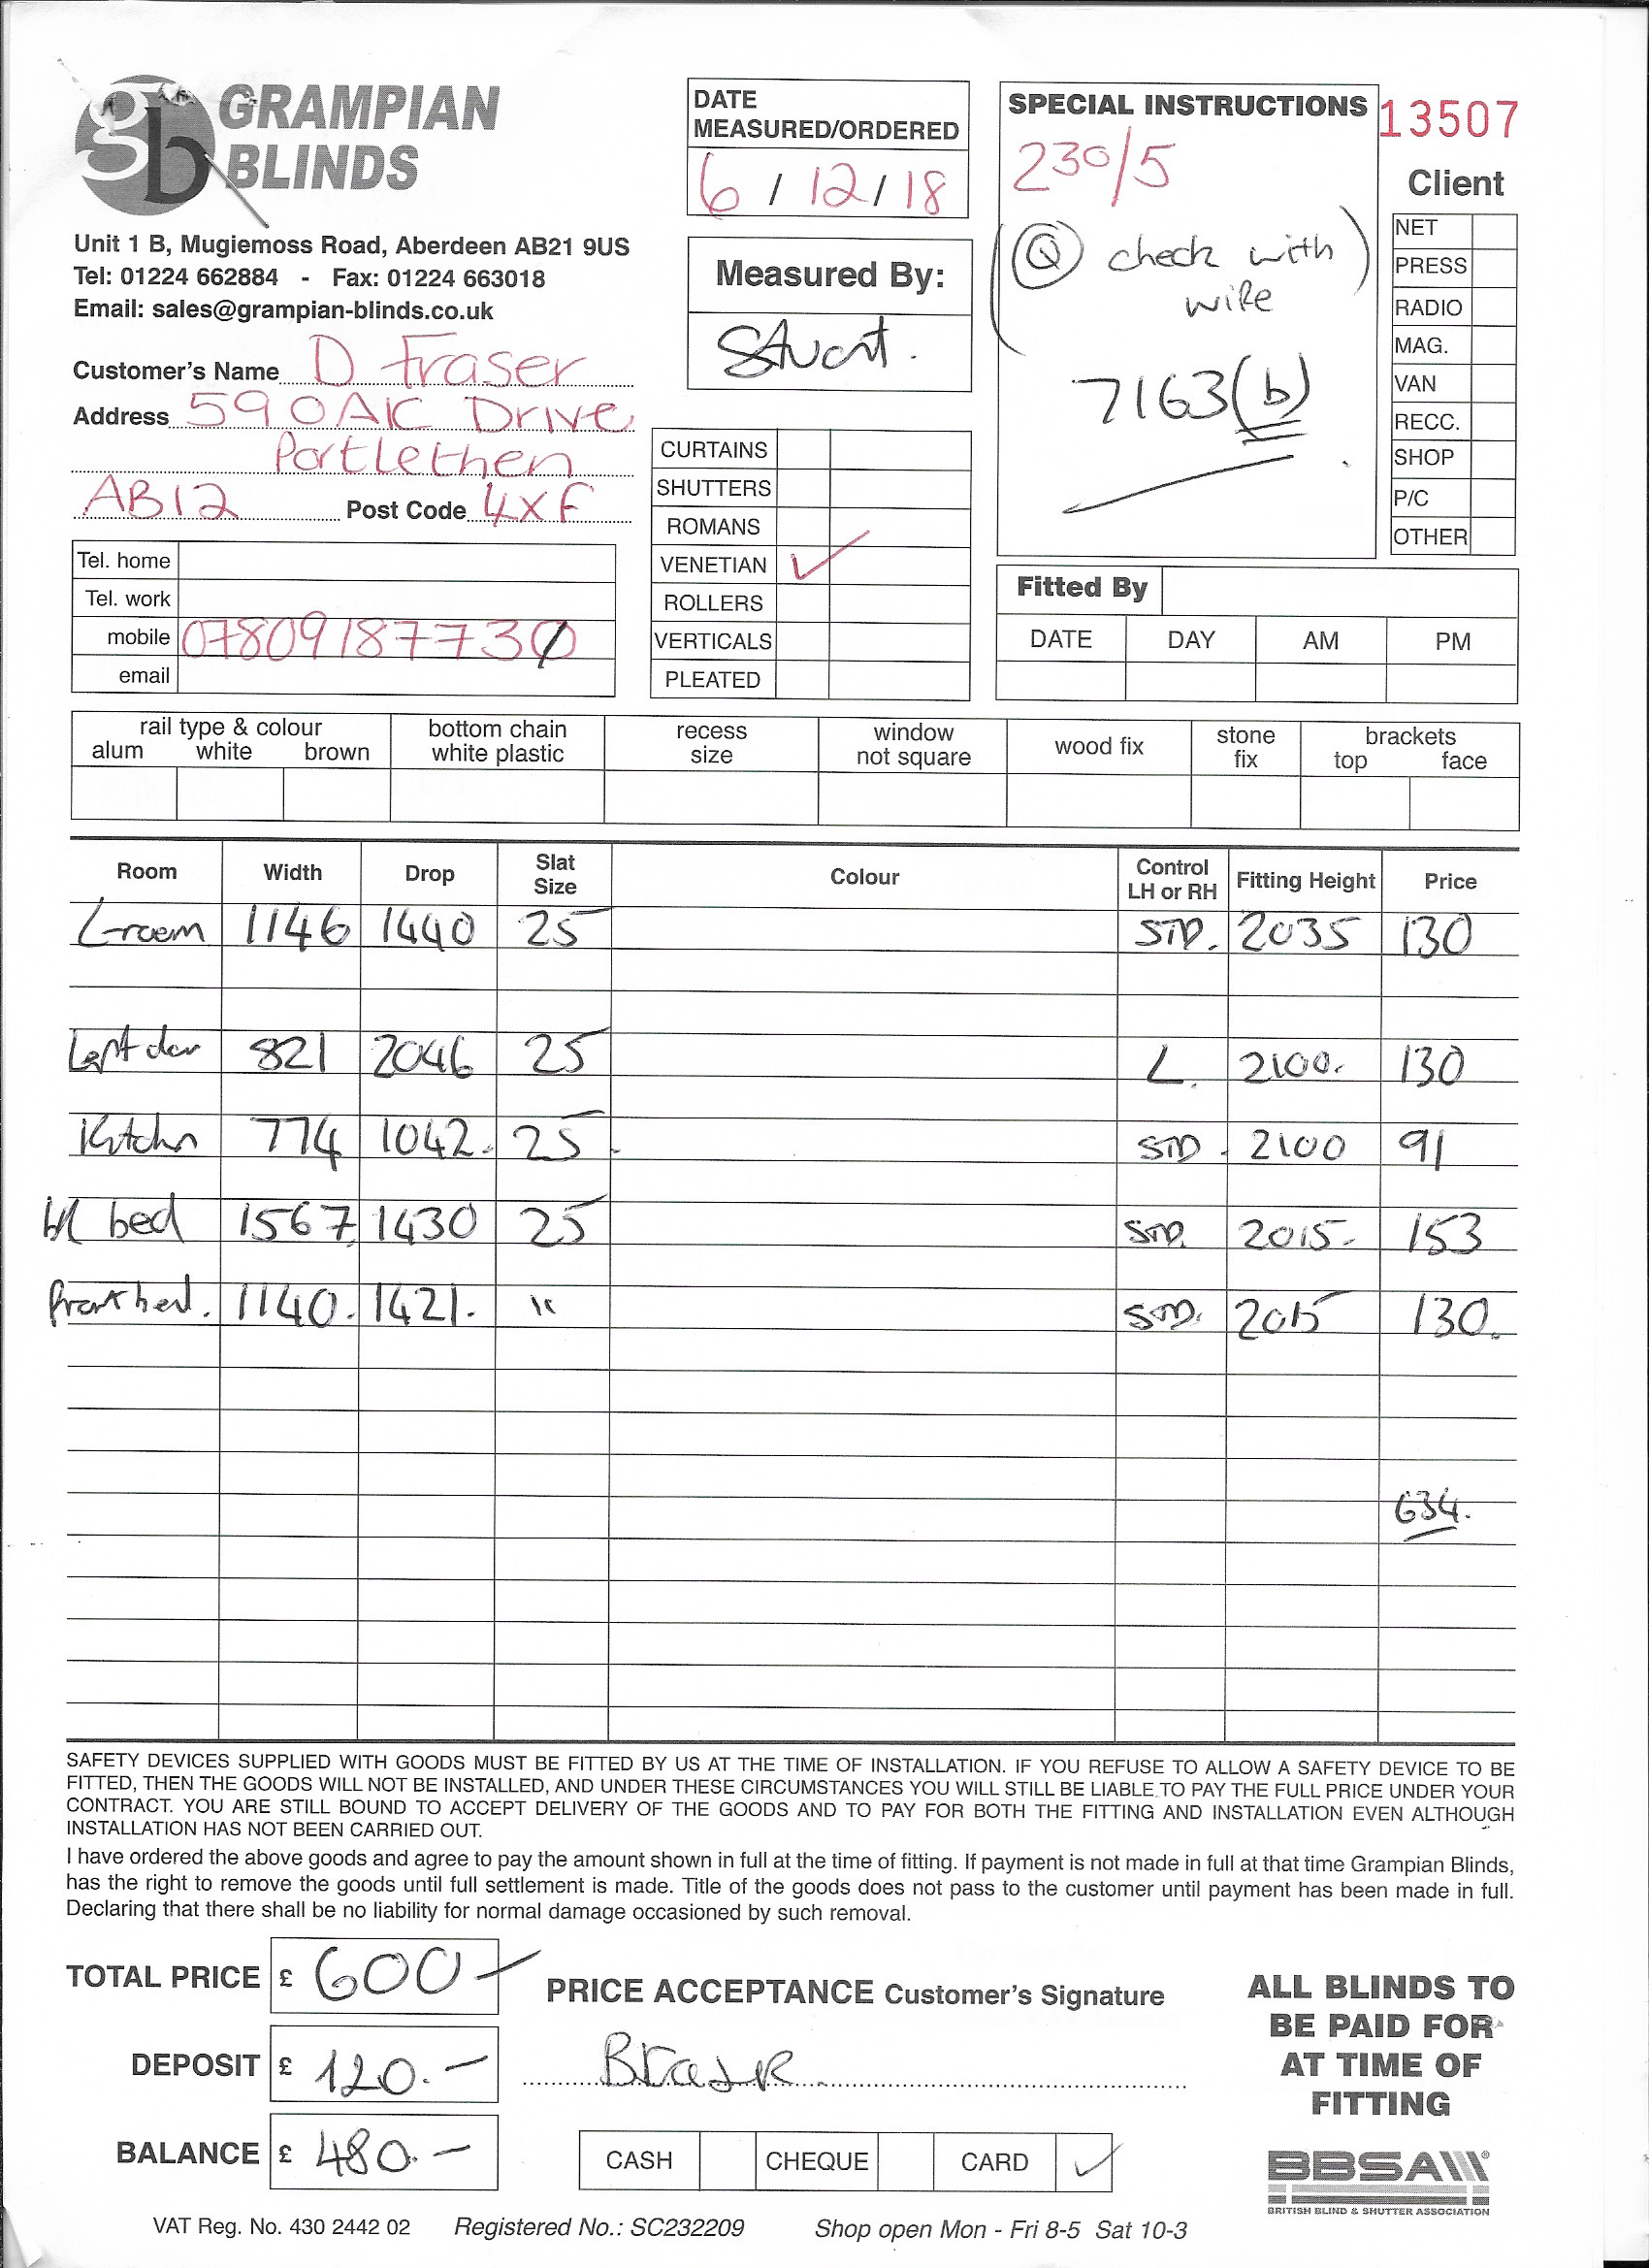 GRAMPIAN
BLINDS
Unit 1 B, Mugiemoss Road, Aberdeen AB21 9US
Tel: 01224 662884 - Fax: 01224 663018
Email: sales@grampian-blinds.co.uk
Customer's Name D Fraser
Address 59 OAK Drive
Portlethen
AB12 Post Code 4XF
Tel. home
Tel. work
mobile 07809187730
email
DATE
MEASURED/ORDERED
6 / 12 / 18
Measured By:
Stuart.
CURTAINS
SHUTTERS
ROMANS
VENETIAN ✓
ROLLERS
VERTICALS
PLEATED
SPECIAL INSTRUCTIONS
230/5
(Q check with
wife)
7163(b)
13507
Client
NET
PRESS
RADIO
MAG.
VAN
RECC.
SHOP
P/C
OTHER
Fitted By
DATE DAY AM PM
rail type & colour
alum white brown
bottom chain
white plastic
recess
size
window
not square
wood fix
stone
fix
brackets
top face
Room Width Drop Slat Size Colour Control LH or RH Fitting Height Price
L-room 1146 1440 25 STD. 2035 130
Left door 821 2046 25 L. 2100. 130
Kitchn 774 1042. 25 STD. 2100 91
bed 1567 1430 25 STD. 2015. 153
front bed. 1140. 1421. " STD. 2015 130.
634.
SAFETY DEVICES SUPPLIED WITH GOODS MUST BE FITTED BY US AT THE TIME OF INSTALLATION. IF YOU REFUSE TO ALLOW A SAFETY DEVICE TO BE
FITTED, THEN THE GOODS WILL NOT BE INSTALLED, AND UNDER THESE CIRCUMSTANCES YOU WILL STILL BE LIABLE TO PAY THE FULL PRICE UNDER YOUR
CONTRACT. YOU ARE STILL BOUND TO ACCEPT DELIVERY OF THE GOODS AND TO PAY FOR BOTH THE FITTING AND INSTALLATION EVEN ALTHOUGH
INSTALLATION HAS NOT BEEN CARRIED OUT.
I have ordered the above goods and agree to pay the amount shown in full at the time of fitting. If payment is not made in full at that time Grampian Blinds,
has the right to remove the goods until full settlement is made. Title of the goods does not pass to the customer until payment has been made in full.
Declaring that there shall be no liability for normal damage occasioned by such removal.
TOTAL PRICE £ 600 -
DEPOSIT £ 120. -
BALANCE £ 480. -
PRICE ACCEPTANCE Customer's Signature
CASH CHEQUE CARD ✓
ALL BLINDS TO
BE PAID FOR
AT TIME OF
FITTING
BBSA
BRITISH BLIND & SHUTTER ASSOCIATION
VAT Reg. No. 430 2442 02 Registered No.: SC232209 Shop open Mon - Fri 8-5 Sat 10-3